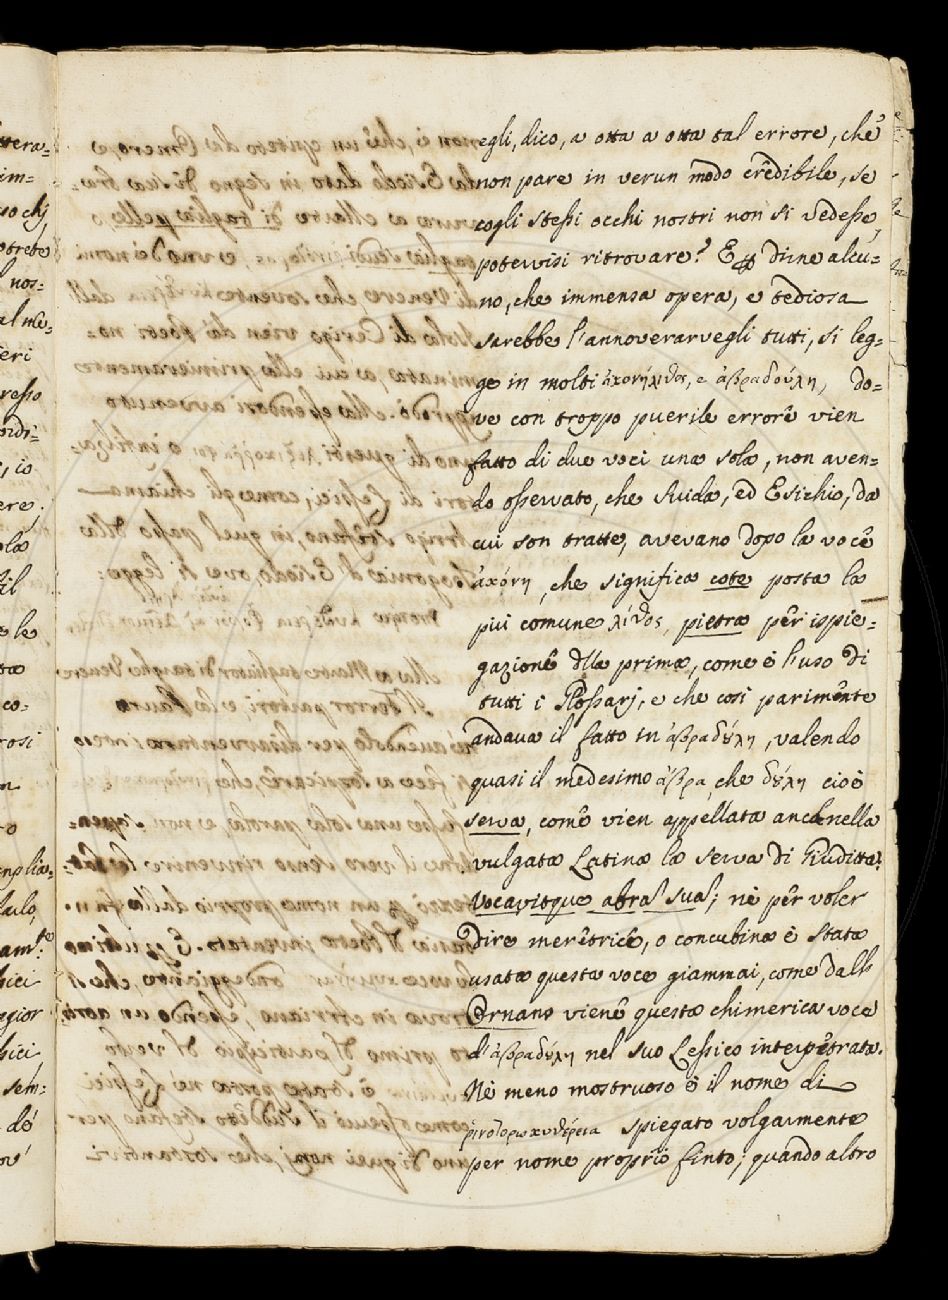 egli, dico, a otta a otta tal errore, che
non pare in verun modo credibile, se
cogli stessi occhi nostri non si vedesse,
potervisi ritrovare? E dirne alcu=
no, che immensa opera, e tediosa
sarebbe l'annoverarvegli tutti, si leg=
ge in molti ἀκονήλιθος, e ἁβραδούλη, do=
ve con troppo puerile errore vien
fatto di due voci una sola, non aven=
do osservato, che Suida, ed Esichio, da
cui son tratte, avevano dopo la voce
ἀκόνη, che significa cote posta la
piu comune λίθος, pietra per ispie=
gazione dlla prima, come è l'uso di
tutti i Glossarj, e che cosi parimente
andava il fatto in ἁβραδούλη, valendo
quasi il medesimo ἅβρα, che δούλη cioè
serva, come vien appellata anche nella
vulgata Latina la serva di Giuditta:
Vocavitque abra sua; nè per voler
dire meretrice, o concubina è stata
usata questa voce giammai, come dall
Ornano viene questa chimerica voce
d'ἁβραδούλη nel suo Lessico interpetrata.
Nè meno mostruoso è il nome di
spiegato volgarmente
per nome proprio finto; quando altro